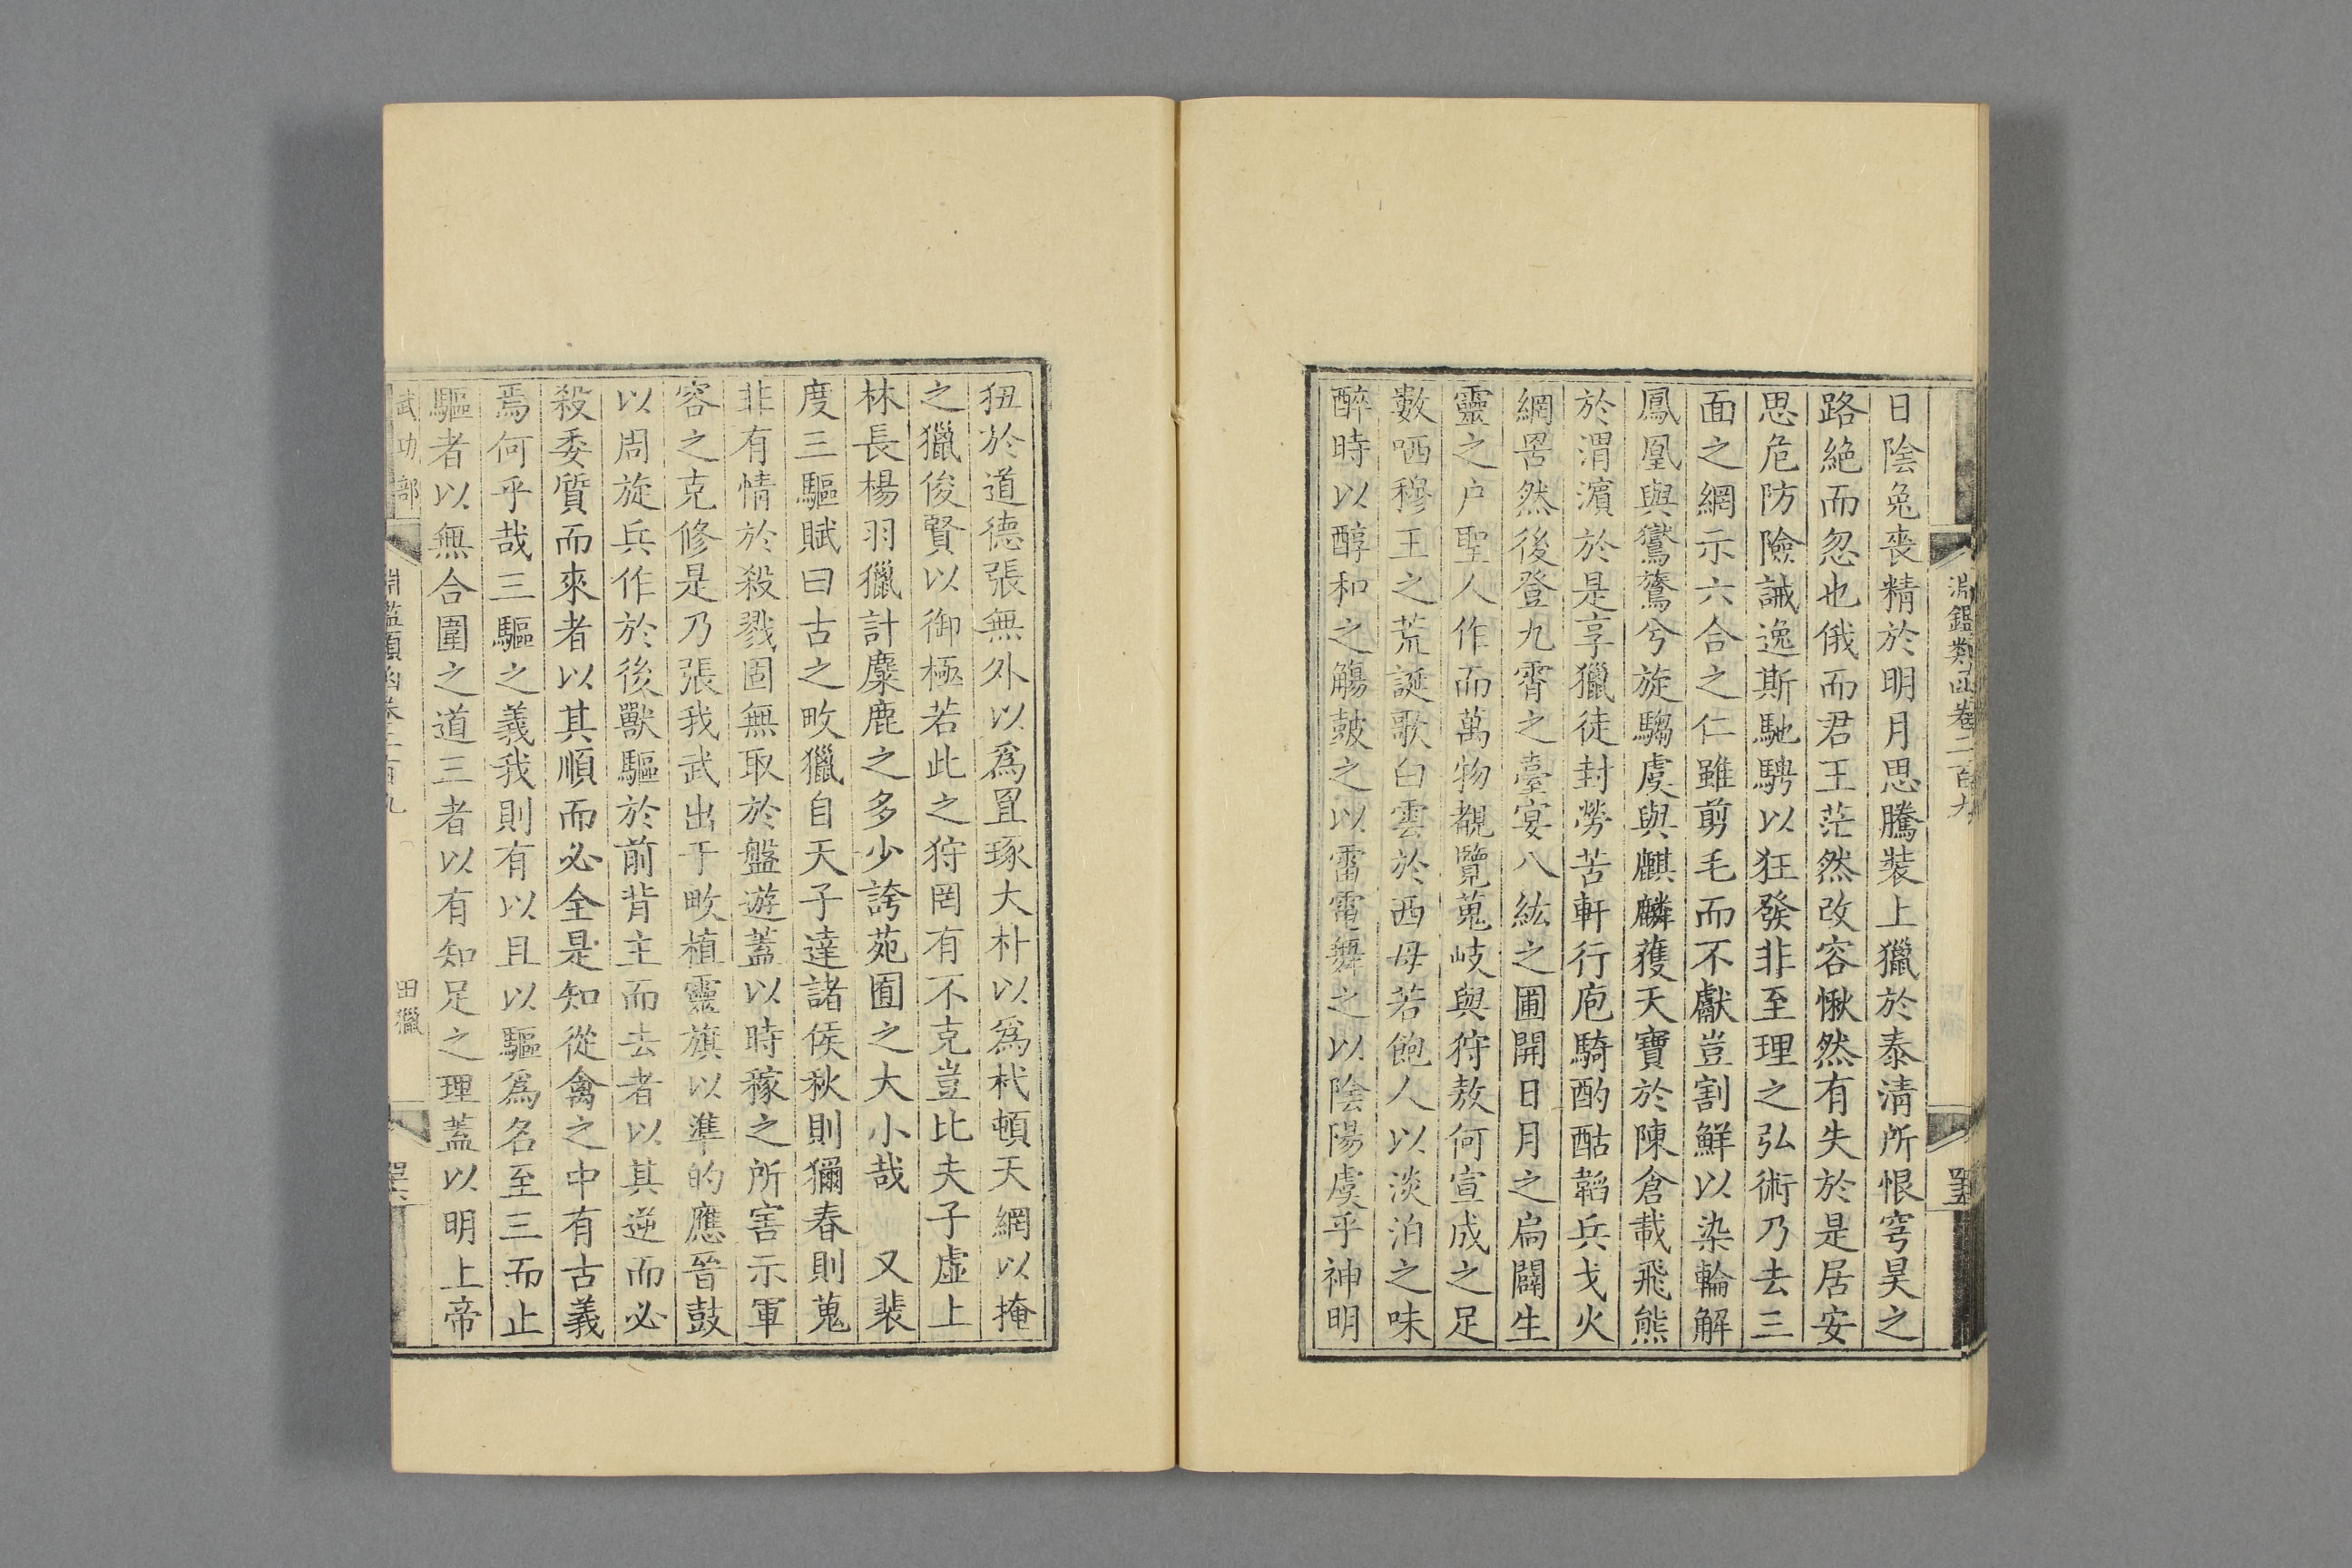 淵鑑類函卷二百九
日陰兔喪精於明月思騰裝上獵於泰清所恨穹昊之
路絶而忽也俄而君王茫然改容愀然有失於是居安
思危防險誡逸斯馳騁以狂發非至理之弘術乃去三
面之網示六合之仁雖剪毛而不獻豈割鮮以染輪解
鳳凰與鸑鷟兮旋騶虞與麒麟獲天寶於陳倉載飛熊
於渭濱於是享獵徒封勞苦軒行庖騎酌酤韜兵戈火
網罟然後登九霄之臺宴八紘之圃開日月之扃闢生
靈之户聖人作而萬物覩覽蒐岐與狩敖何宣成之足
數哂穆王之荒誕歌白雲於西母若飽人以淡泊之味
醉時以醇和之觴鼓之以雷電舞之以陰陽虞乎神明
狃於道德張無外以爲罝琢大朴以爲杙頓天網以掩
之獵俊賢以御極若此之狩罔有不克豈比夫子虛上
林長楊羽獵計麋鹿之多少誇苑囿之大小哉　又裴
度三驅賦曰古之畋獵自天子達諸侯秋則獮春則蒐
非有情於殺戮固無取於盤遊蓋以時稼之所害示軍
容之克修是乃張我武出于畋植靈旗以準的應晉鼓
以周旋兵作於後獸驅於前背主而去者以其逆而必
殺委質而來者以其順而必全是知從禽之中有古義
焉何乎哉三驅之義我則有以且以驅爲名至三而止
驅者以無合圍之道三者以有知足之理蓋以明上帝
武功部
淵鑑類函卷二百九
田獵